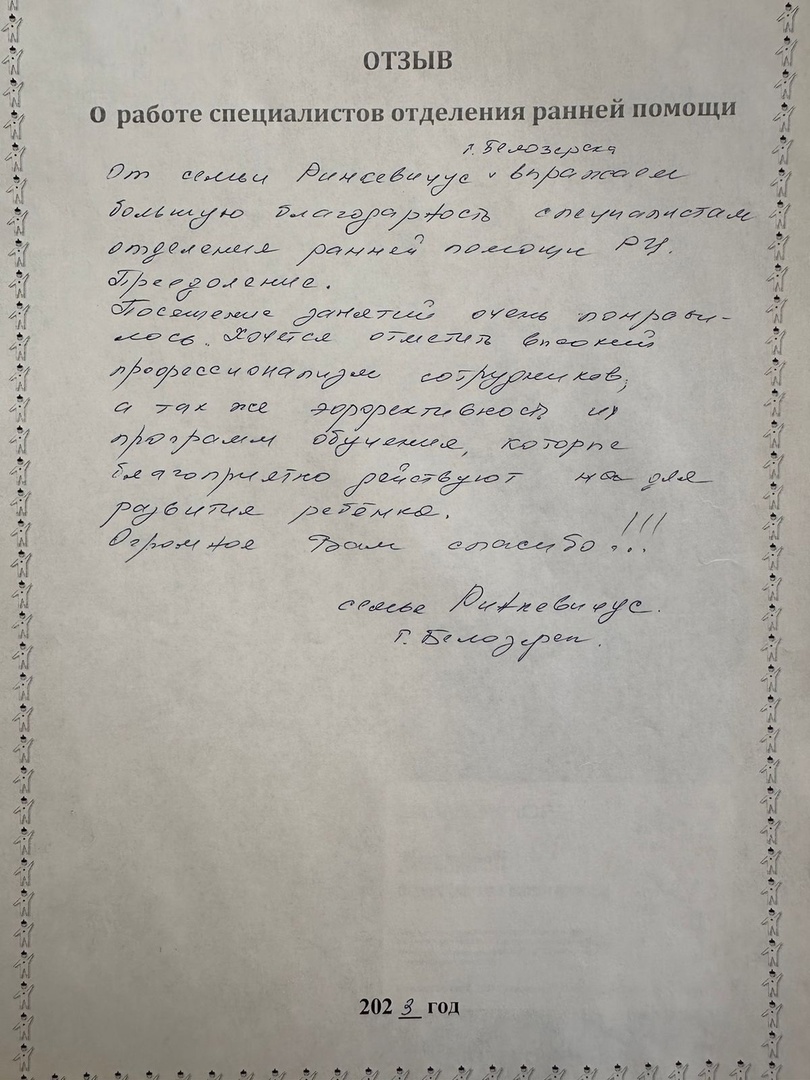 ОТЗЫВ
О работе специалистов отделения ранней помощи
г. Белозерска
От семьи Ринкевичус v выражаем
большую благодарность специалистам
отделения ранней помощи РЦ.
Преодоление.
Посещение занятий очень понрави-
лось. Хочется отметить высокий
профессионализм сотрудников,
а так же эффективность их
программ обучения, которые
благоприятно действуют на для
развития ребёнка.
Огромное Вам спасибо!!!
семья Ринкевичус.
г. Белозерск.
2023 год